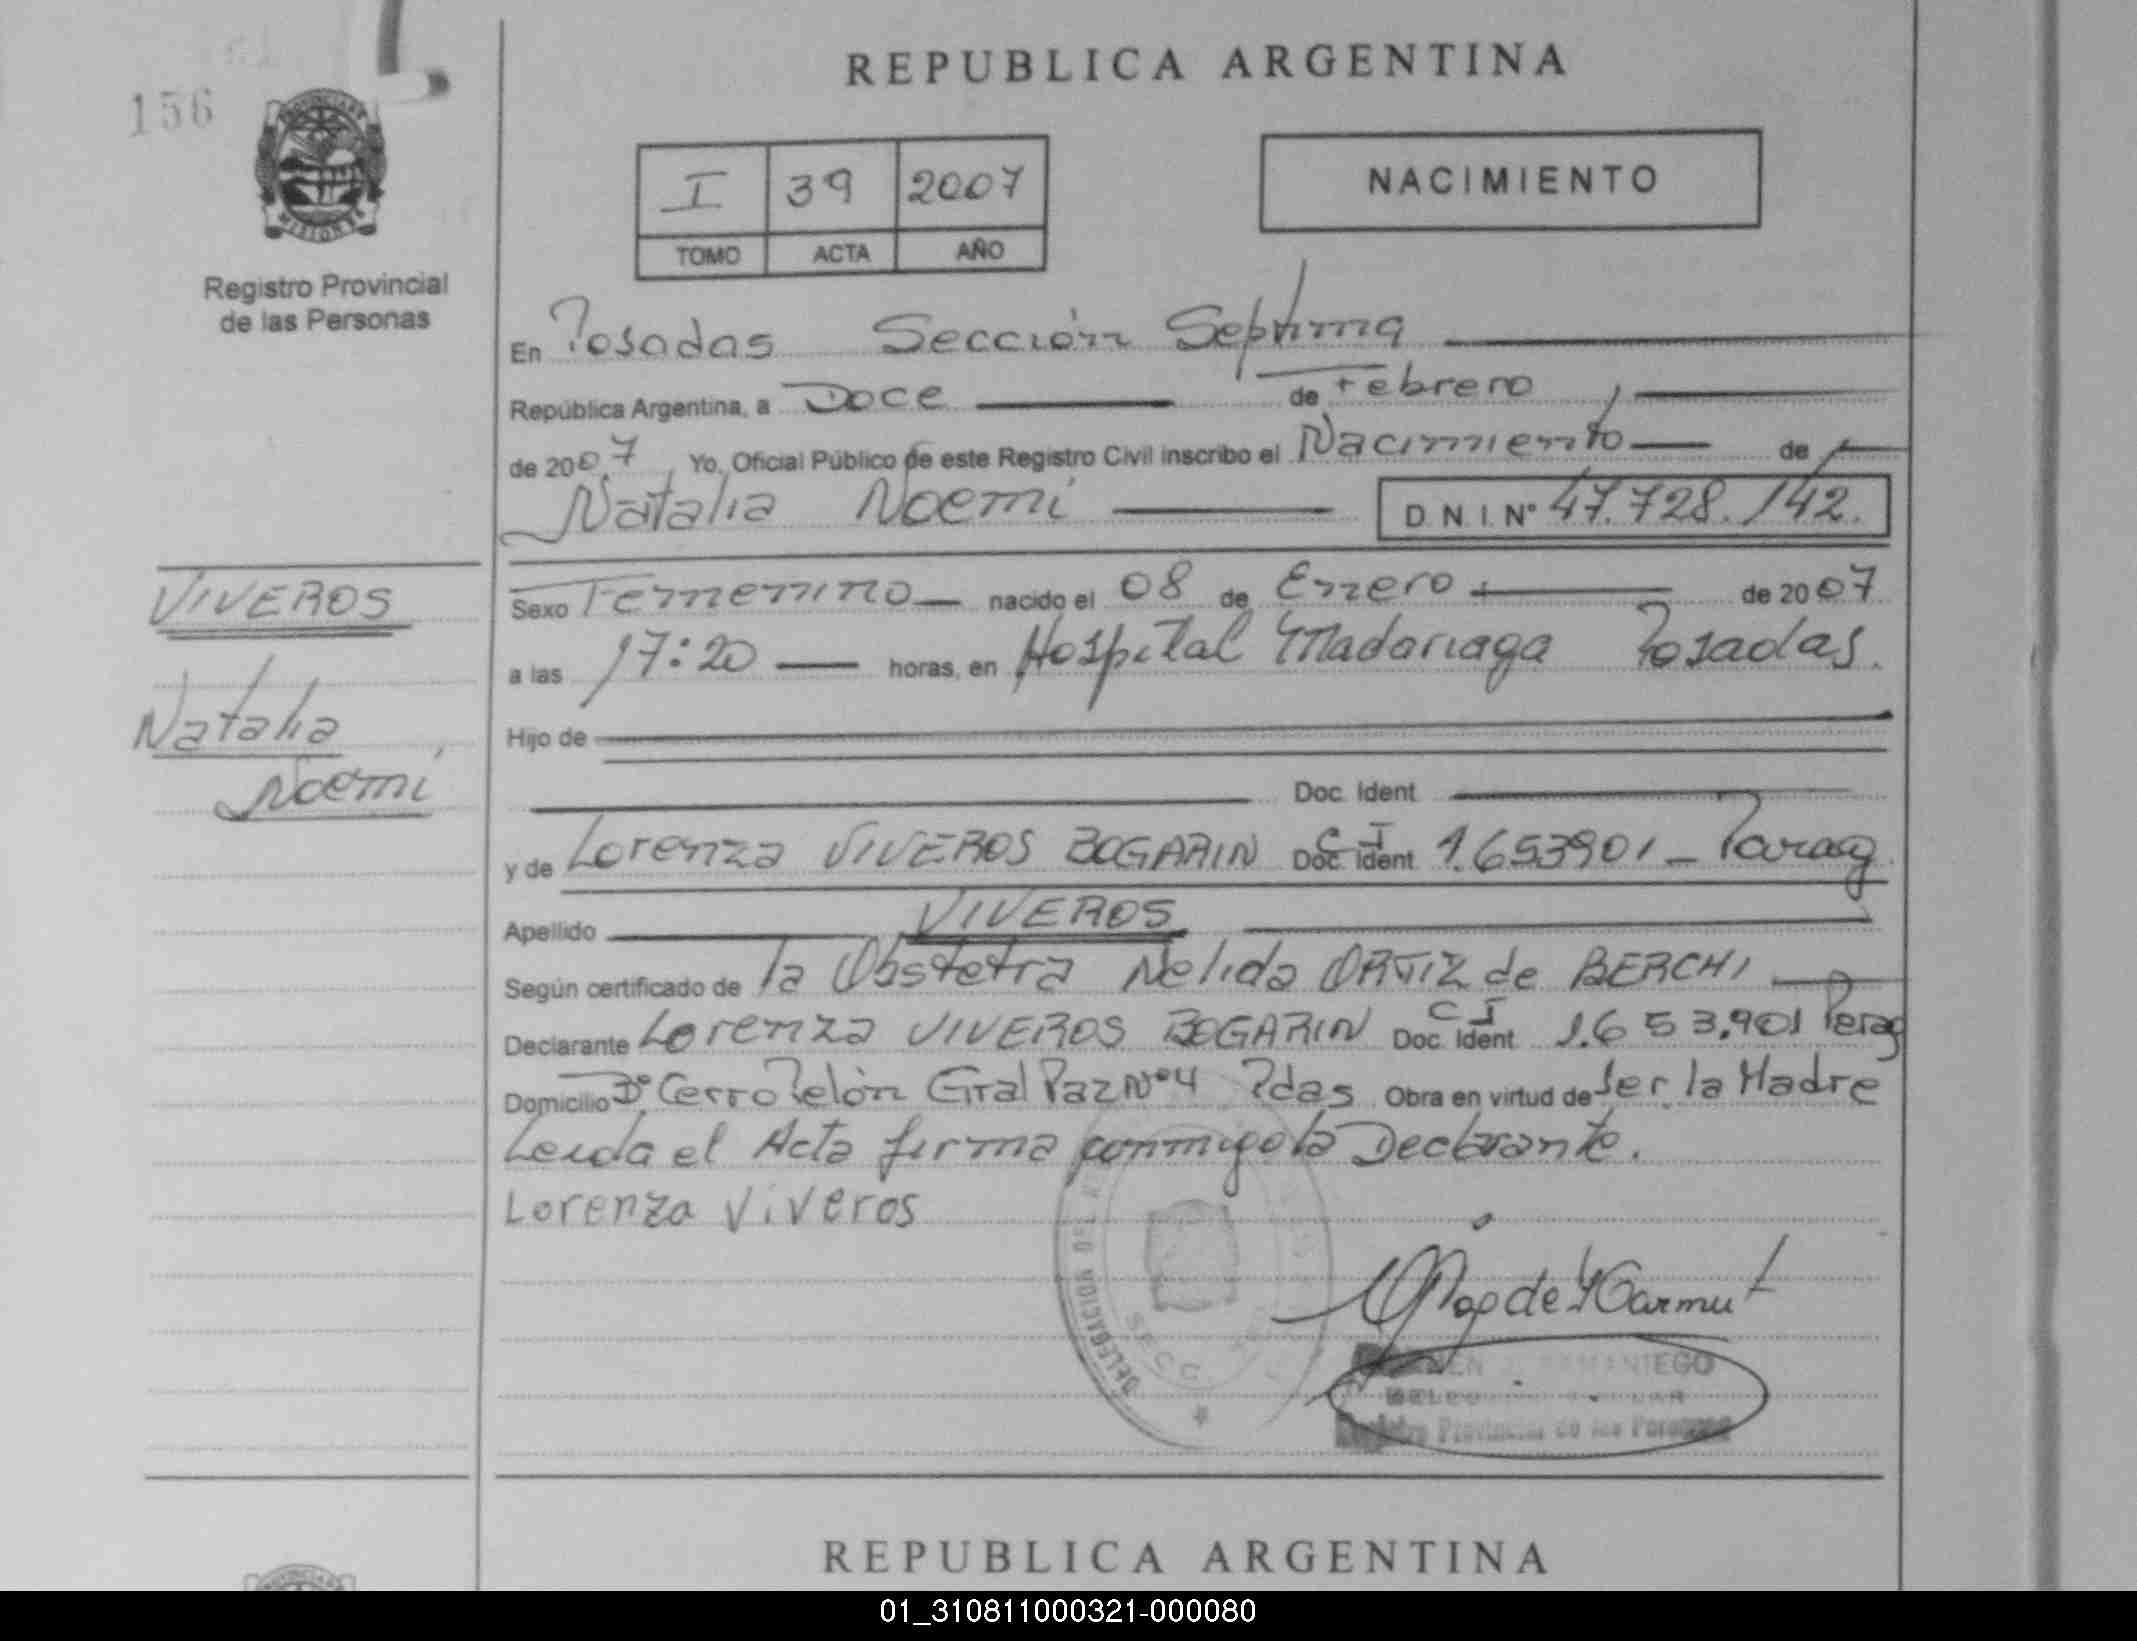 REPUBLICA ARGENTINA
156
PROVINCIA DE MISIONES
Registro Provincial
de las Personas
I 39 2007
TOMO ACTA AÑO
NACIMIENTO
En Posadas Sección Septima
República Argentina, a Doce de Febrero
de 2007 Yo, Oficial Público de este Registro Civil inscribo el Nacimiento de
Natalia Noemi D.N.I. Nº 47.728.142.
VIVEROS
Natalia
Noemi
Sexo Femenino nacido el 08 de Enero de 2007
a las 17:20 horas, en Hospital Madariaga Posadas.
Hijo de
Doc. Ident
y de Lorenza VIVEROS BOGARIN Doc. Ident C I 1.653901 - Parag
Apellido VIVEROS
Según certificado de la Obstetra Nelida ORTIZ de BERCHI
Declarante Lorenza VIVEROS BOGARIN Doc. Ident C I 1.653.901 Parag
Domicilio Bº Cerro Pelón Gral Paz Nº 4 Pdas Obra en virtud de Ser la Madre
Leida el Acta firma conmigo la Declarante.
Lorenza Viveros
DELEGACION DEL
SECC
Registro Provincial de las Personas
REPUBLICA ARGENTINA
01_310811000321-000080